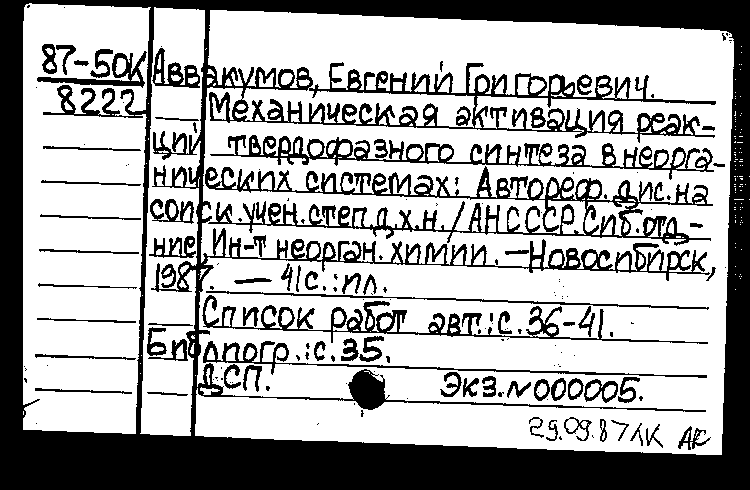 87-50К Аввакумов, Евгений Григорьевич.
8222 Механическая активация реак-
ций твердофазного синтеза в неорга-
нических системах: Автореф. дис. на
соиск. учен. степ. д.х.н. / АН СССР. Сиб. отд-
ние, Ин-т неорган. химии. — Новосибирск,
1987. — 41 с.: ил.
Список работ авт.: с. 36-41.
Библиогр.: с. 35.
ДСП. Экз. №000005.
29.09.87 АК